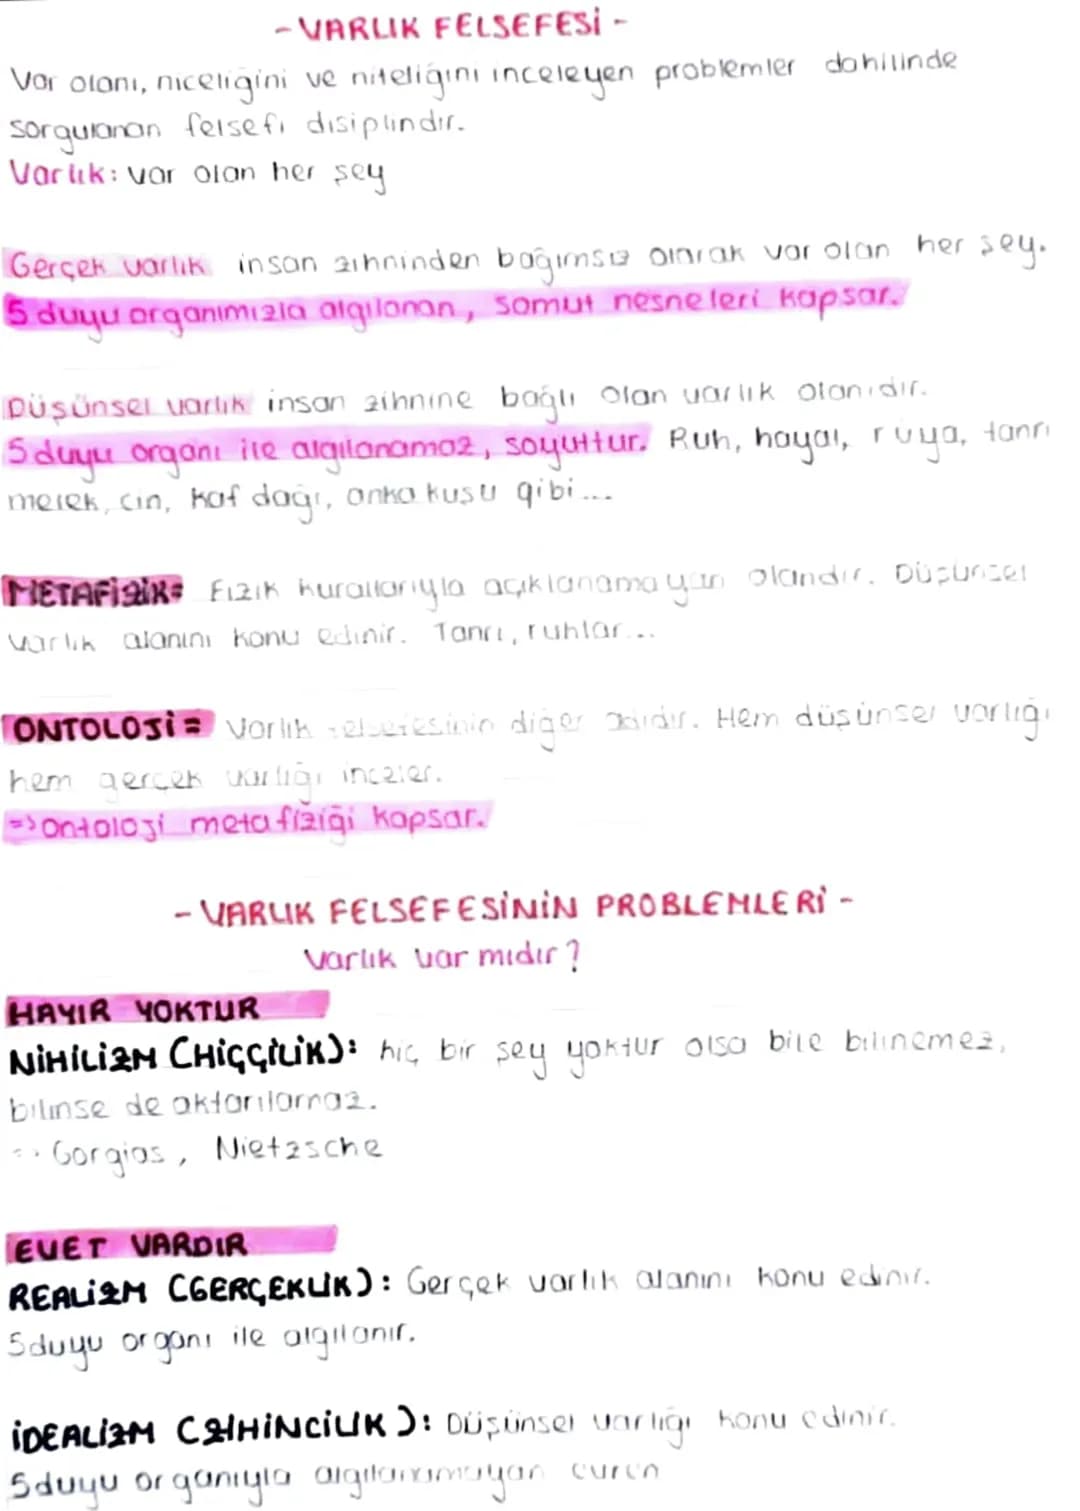 - VARLIK FELSEFESİ -
Var olanı, niceliğini ve niteliğini inceleyen problemler dahilinde
sorgulanan felsefi disiplindir.
Varlık: var olan her şey
Gerçek varlık insan zihninden bağımsız olarak var olan her şey.
5 duyu organımızla algılanan, somut nesneleri kapsar.
Düşünsel varlık insan zihnine bağlı olan varlık alanıdır.
5 duyu organı ile algılanamaz, soyuttur. Ruh, hayal, rüya, tanrı
melek, cin, kaf dağı, anka kuşu gibi...
METAFİZİK= Fizik kurallarıyla açıklanamayan olandır. Düşünsel
varlık alanını konu edinir. Tanrı, ruhlar...
ONTOLOJİ= Varlık felsefesinin diğer adıdır. Hem düşünsel varlığı
hem gerçek varlığı inceler.
=> Ontoloji metafiziği kapsar.
- VARLIK FELSEFESİNİN PROBLEMLERİ -
Varlık var mıdır?
HAYIR YOKTUR
NİHİLİZM (HİÇÇİLİK): hiç bir şey yoktur olsa bile bilinemez,
bilinse de aktarılamaz.
Gorgias, Nietzsche
EVET VARDIR
REALİZM (GERÇEKLİK): Gerçek varlık alanını konu edinir.
5 duyu organı ile algılanır.
İDEALİZM (ZİHİNCİLİK): Düşünsel varlığı konu edinir.
5 duyu organıyla algılanamayan